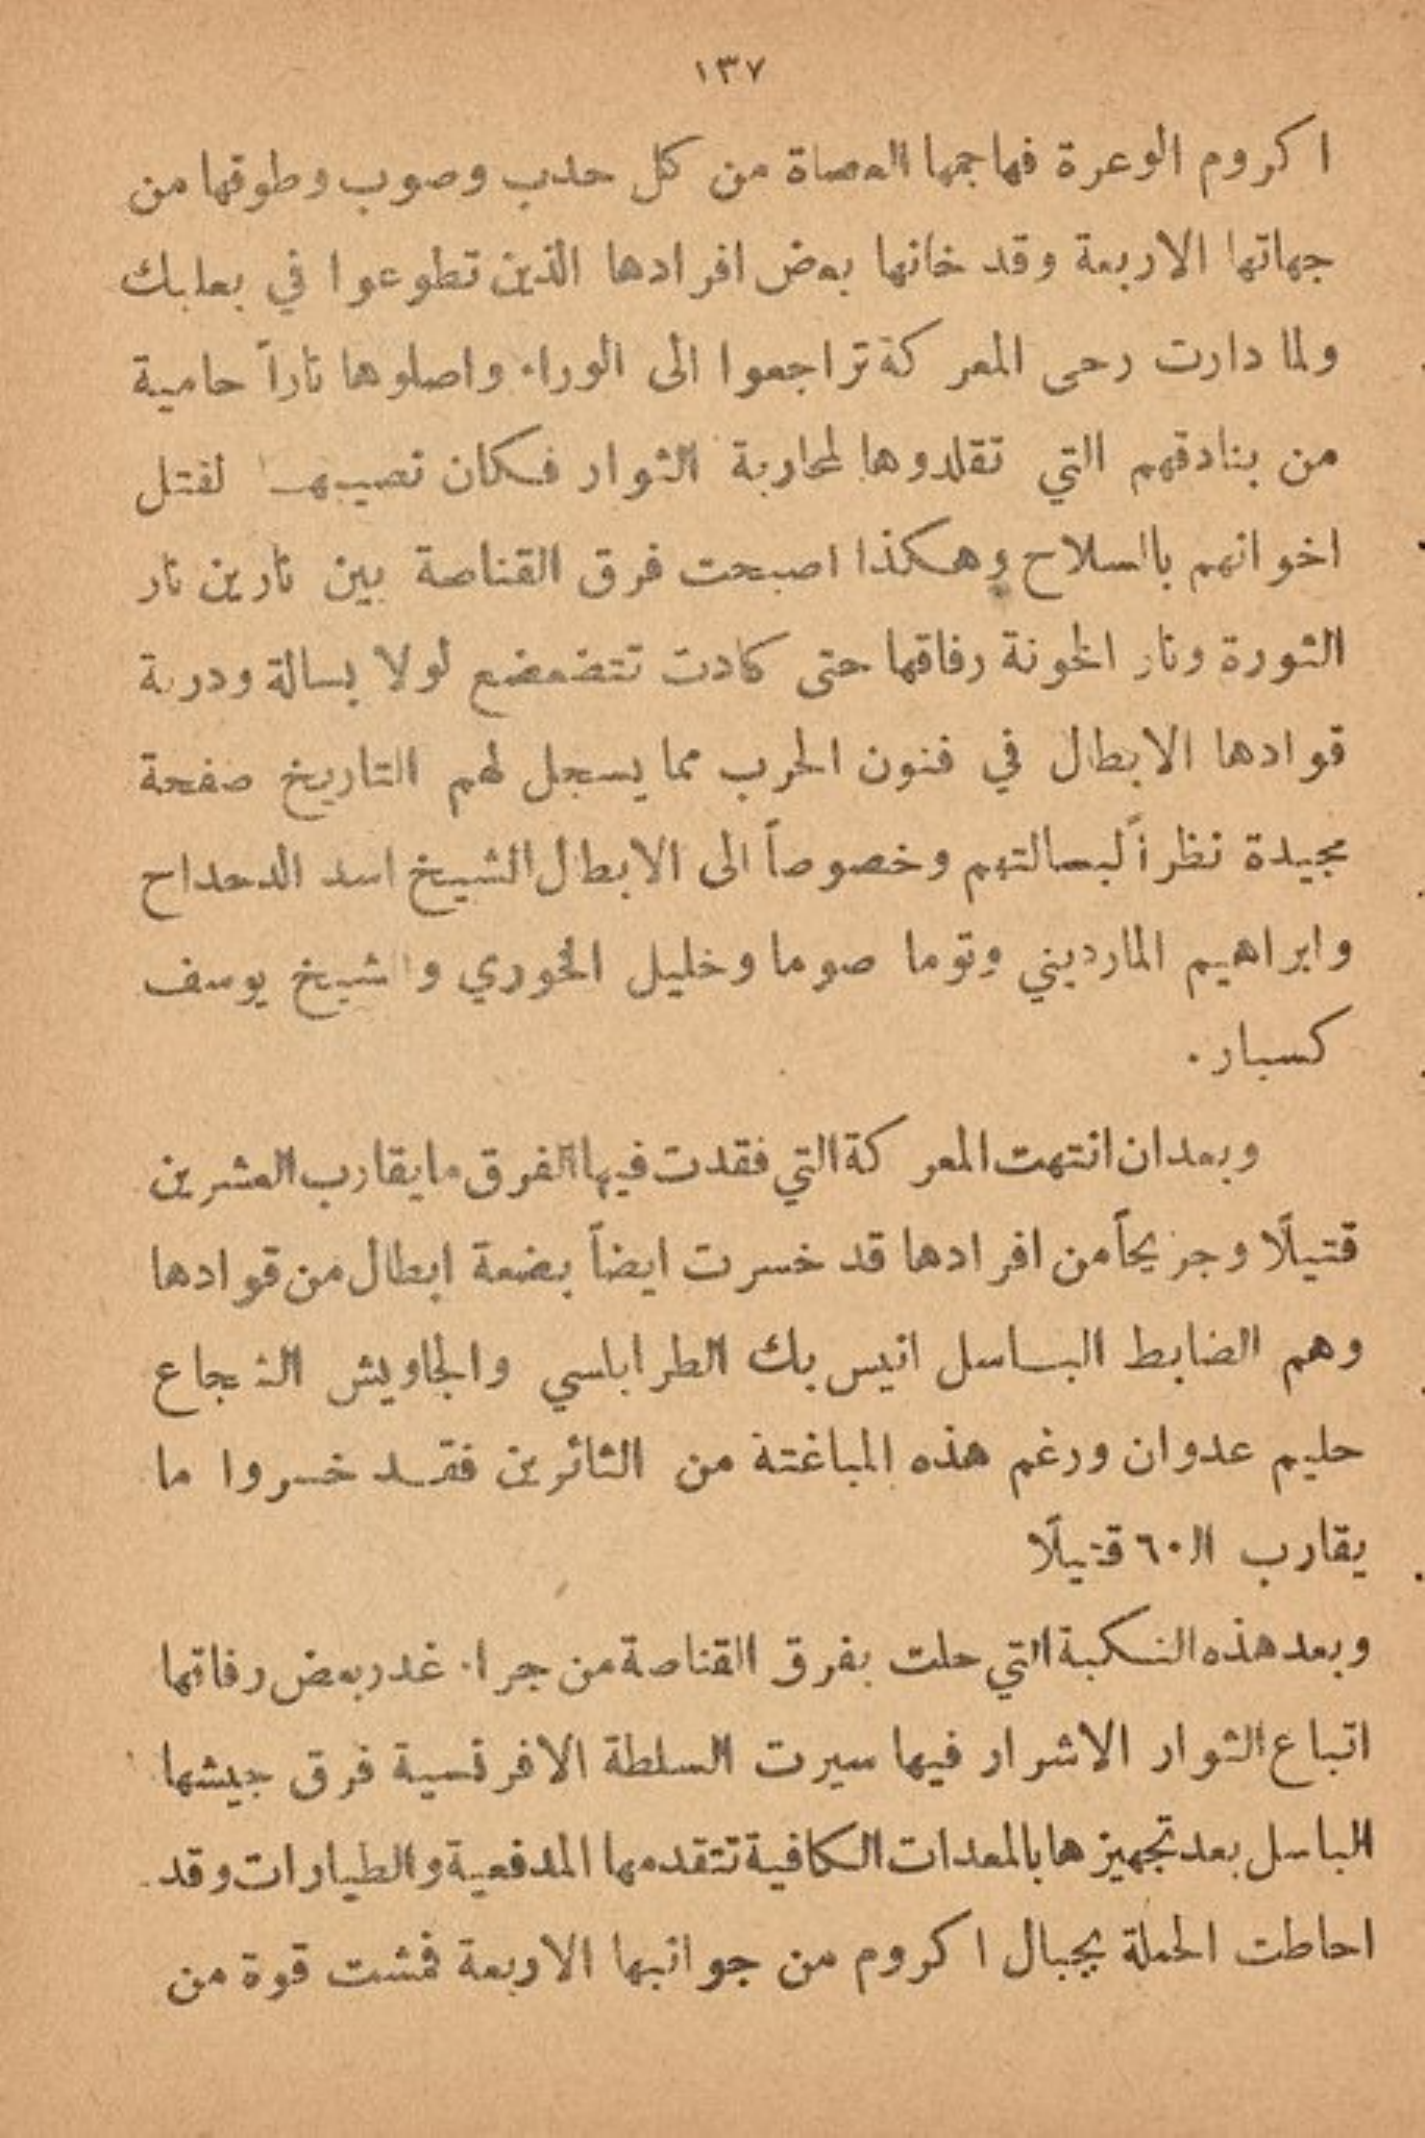 ١٣٧
اكروم الوعرة فهاجمها العصاة من كل حدب وصوب وطوقها من
جهاتها الاربعة وقد خانها بعض افرادها الذين تطوعوا في بعلبك
ولما دارت رحى المعركة تراجعوا الى الوراء واصلوها ناراً حامية
من بنادقهم التي تقلدوها لمحاربة الثوار فكان نصيبها لفتل
اخوانهم بالسلاح وهكذا اصبحت فرق القناصة بين نارين نار
الثورة ونار الخونة رفاقها حتى كادت تتضعضع لولا بسالة ودربة
قوادها الابطال في فنون الحرب مما يسجل لهم التاريخ صفحة
مجيدة نظراً لبسالتهم وخصوصاً الى الابطال الشيخ اسد الدحداح
وابراهيم المارديني وتوما صوما وخليل الخوري والشيخ يوسف
كسبار.
وبعد ان انتهت المعركة التي فقدت فيها الفرق ما يقارب العشرين
قتيلًا وجريحاً من افرادها قد خسرت ايضاً بضعة ابطال من قوادها
وهم الضابط الباسل انيس بك الطرابلسي والجاويش الشجاع
حليم عدوان ورغم هذه المباغتة من الثائرين فقد خسروا ما
يقارب الـ٦٠ قتيلًا
وبعد هذه النكبة التي حلت بفرق القناصة من جراء غدر بعض رفاتها
اتباع الثوار الاشرار فيها سيرت السلطة الافرنسية فرق جيشها
الباسل بعد تجهيزها بالمعدات الكافية تتقدمها المدفعية والطيارات وقد
احاطت الحملة بجبال اكروم من جوانبها الاربعة فمشت قوة من